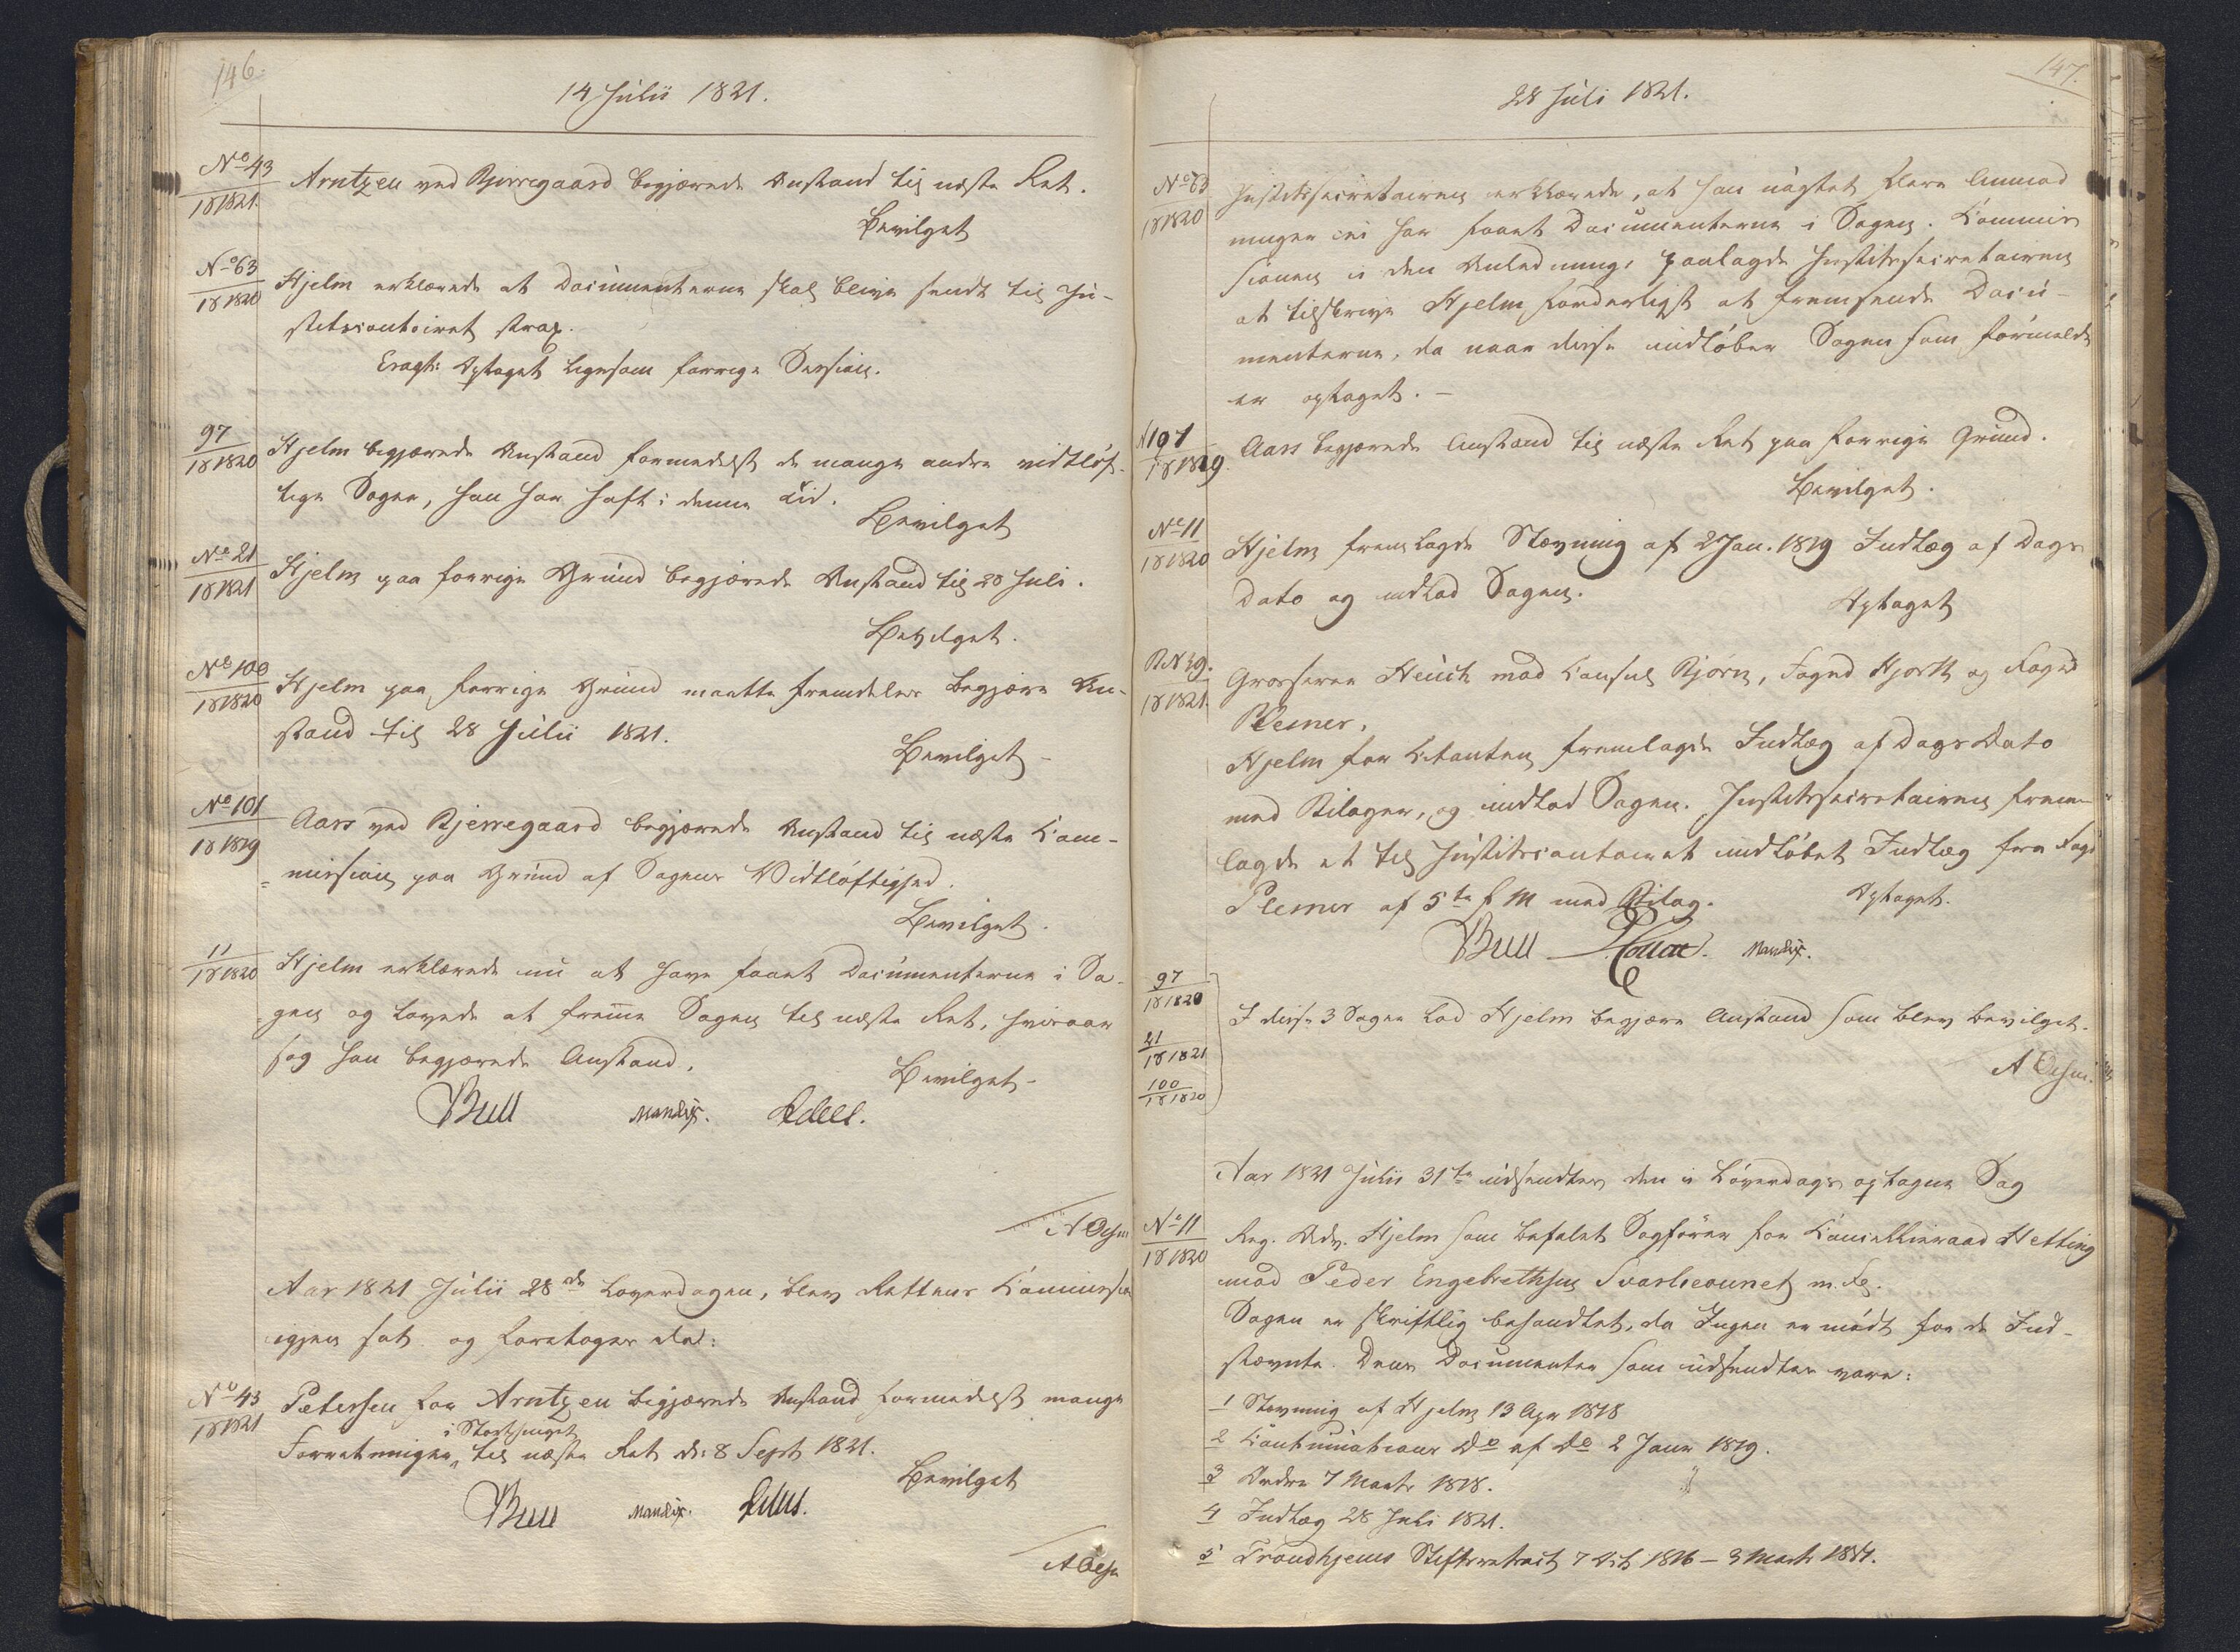 146.
14 Julii 1821.
No 43
18 1821.
Arntzen ved Bjerregaard begjærede Anstand til næste Ret.
Bevilget
No 63
18 1820
Hjelm erklærede at Documenterne skal blive sendt til Ju-
stitscontoiret strax.
Eragt: Optaget ligesom forrige Session.
97
18 1820
Hjelm begjærede Anstand formedelst de mange andre vidtløf-
tige Sager, han har haft i denne Tid.
Bevilget
No 21
18 1821
Hjelm paa forrige Grund begjærede Anstand til 28 Juli.
Bevilget.
No 100
18 1820
Hjelm paa forrige Grund maatte fremdeles begjære An-
stand til 28 Julii 1821.
Bevilget
No 101
18 1819
Aars ved Bjerregaard begjærede Anstand til næste Com-
mission paa Grund af Sagens Vidtløftighed.
Bevilget.
11
18 1820
Hjelm erklærede nu at have faaet Documenterne i Sa-
gen og lovede at fremme Sagen til næste Ret, hvoraar-
sag han begjærede Anstand.
Bevilget
Bull Mandix.
Aar 1821 Julii 28de Løverdagen, blev Rettens Commission
igjen sat og foretoges da:
No 43
18 1821
Petersen for Arntzen begjærede Anstand formedelst mange
i Storthinget
Forretninger, til næste Ret d: 8 Sept 1821.
Bevilget
Bull Mandix.
147.
28 Juli 1821.
No 63
18 1820
Justitssecretairen erklærede, at han uagtet flere Anmod
ninger ei har faaet Documenterne i Sagen. Commis
sionen i den Anledning paalagde Justitssecretairen
at tilskrive Hjelm forderligst at fremsende Docu-
menterne, da naar disse indløber Sagen som formeldt
er optaget. —
N 101
18 1819.
Aars begjærede Anstand til næste Ret paa forrige Grund.
Bevilget.
No 11
18 1820
Hjelm fremlagde Stævning af 2 Jan. 1819 Indlæg af Dags
Dato og indlod Sagen.
Optaget
N 39.
18 1821.
Grosserer Heuch mod Consul Bjørn, Foged Hjorth og Foged
Plesner.
Hjelm for Citanten fremlagde Indlæg af Dags Dato
med Bilager, og indlod Sagen. Justitssecretairen frem-
lagde et til Justitscontoiret indløbet Indlæg fra Fogd
Plesner af 5te f M med Bilag.
Optaget.
Bull Mandix.
97
18 1820
21
18 1821
100
18 1820
I disse 3 Sager lod Hjelm begjære Anstand som blev bevilget.
Aar 1821 Julii 31te udsendtes den i Løverdags optagne Sag
No 11
18 1820
Reg. Adv. Hjelm som befalet Sagfører for Cancellieraad Hetting
mod Peder Engebrethsen m. Fl.
Sagen er skriftlig behandlet, da Ingen er mødt for de Ind-
stævnte. Deres Documenter som udsendtes vare:
1 Stevning af Hjelm 13 Apr 1818
2 Continuations Do af Do 2 Janr 1819.
3 Ordre 7 Marts 1818.
4 Indlæg 28 Juli 1821.
5 Trondhjems 7 Oct 1816 — 3 Marts 1817.